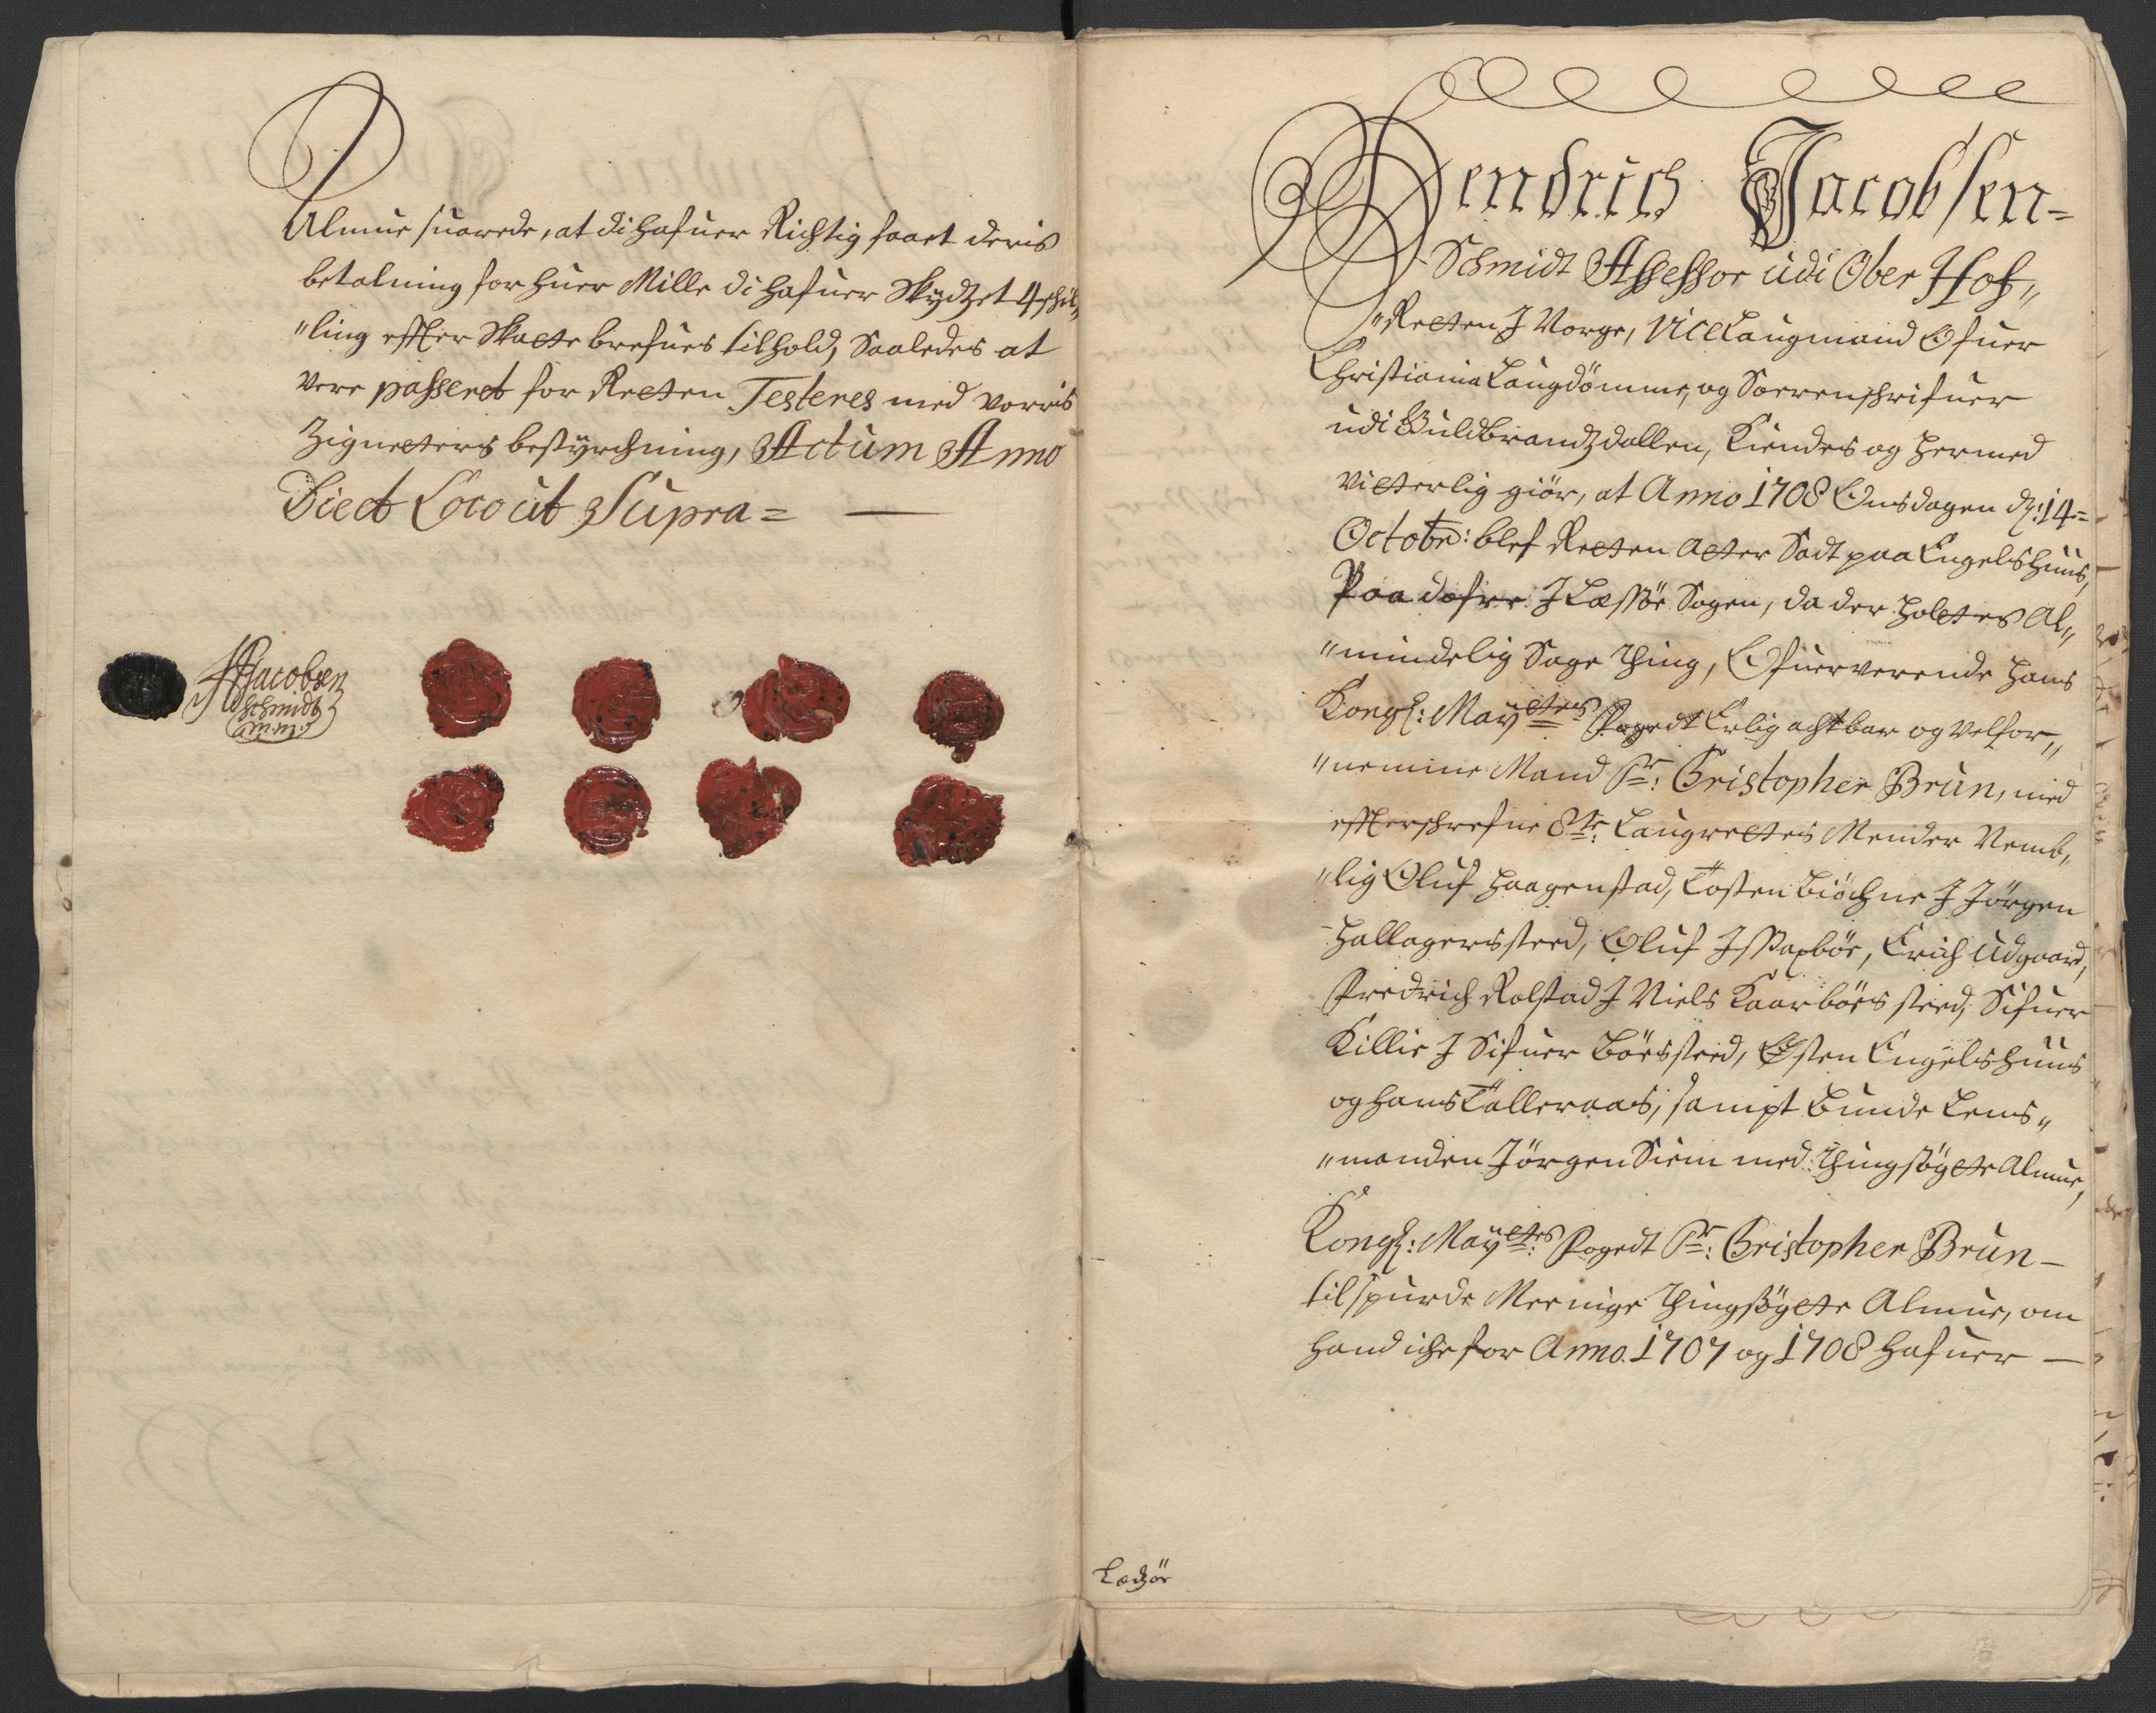 Almue suarede, at di hafuer Richtig faaet deris
betalning for huer Mille di hafuer Skydtzet 4 schil„
„ling efter Skatte brefues tilhold, Saaledes at
vere passeret for Retten Testeres med vorris
Zignetters bestyrchning, Actum Anno
Die et Loco ut Supra =
HJacobsen
Schmidt
Hendrich Jacobsen=
Schmidt Assessor udi Ober Hof„
„Retten J Norge, Vice Laugmand Ofuer
Christiania Laugdömme, og Sorrenschrifuer
udi Guldbrandzdallen, Kiendes og hermed
vitterlig giör, at Anno 1708 Onsdagen d: 14=
Octobr: blef Retten Atter Sadt paa Engelshuus,
Paa dofre J Læssöe Sogen, da der holtes Al„
„mindelig Sage Thing, Ofuerverende hans
Kongl: May:tes Fogedt Erlig achtbar og velfor„
„nemme Mand Sr: Christopher Brun, med
efterschrefne 8te Laugrettes Mender Nemb„
„lig Oluf Haagenstad, Tosten Biöchne J Jörgen
Hallagers steed, Oluf Isstaxböe, Erich Udgaard,
Fredrich Rolstad J Niels Kaarböes steed, Sifuer
Killie J Sifuer Böes steed, Esten Engelshuus
og Hans Tallleraas, sampt Bunde Lens„
„manden Jörgen Siem med Thingsögte Almue,
Kongl: May:tes Fogedt Sr: Christopher Brun
tilspurde Meenige Thingsögte Almue, om
hand iche for Anno 1707 og 1708 hafuer
Ledzör